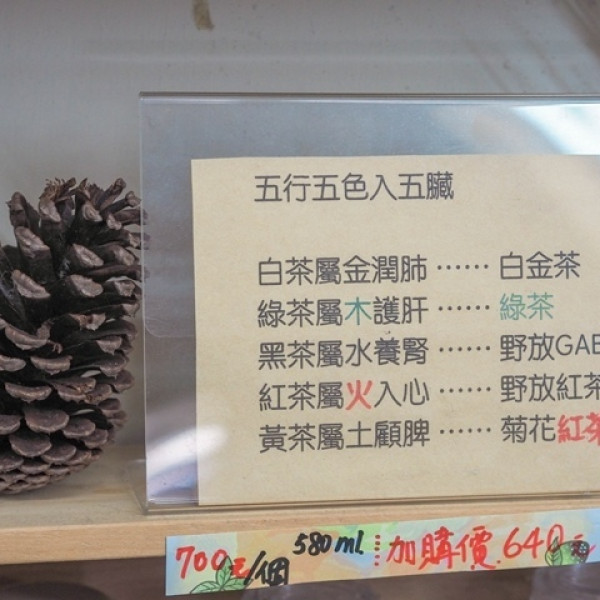 五行五色入五臟
白茶屬金潤肺⋯⋯白金茶
綠茶屬木護肝⋯⋯綠茶
黑茶屬水養腎⋯⋯野放GAB
紅茶屬火入心⋯⋯野放紅茶
黃茶屬土顧脾⋯⋯菊花紅茶
700元/個 580ml 加購價640元